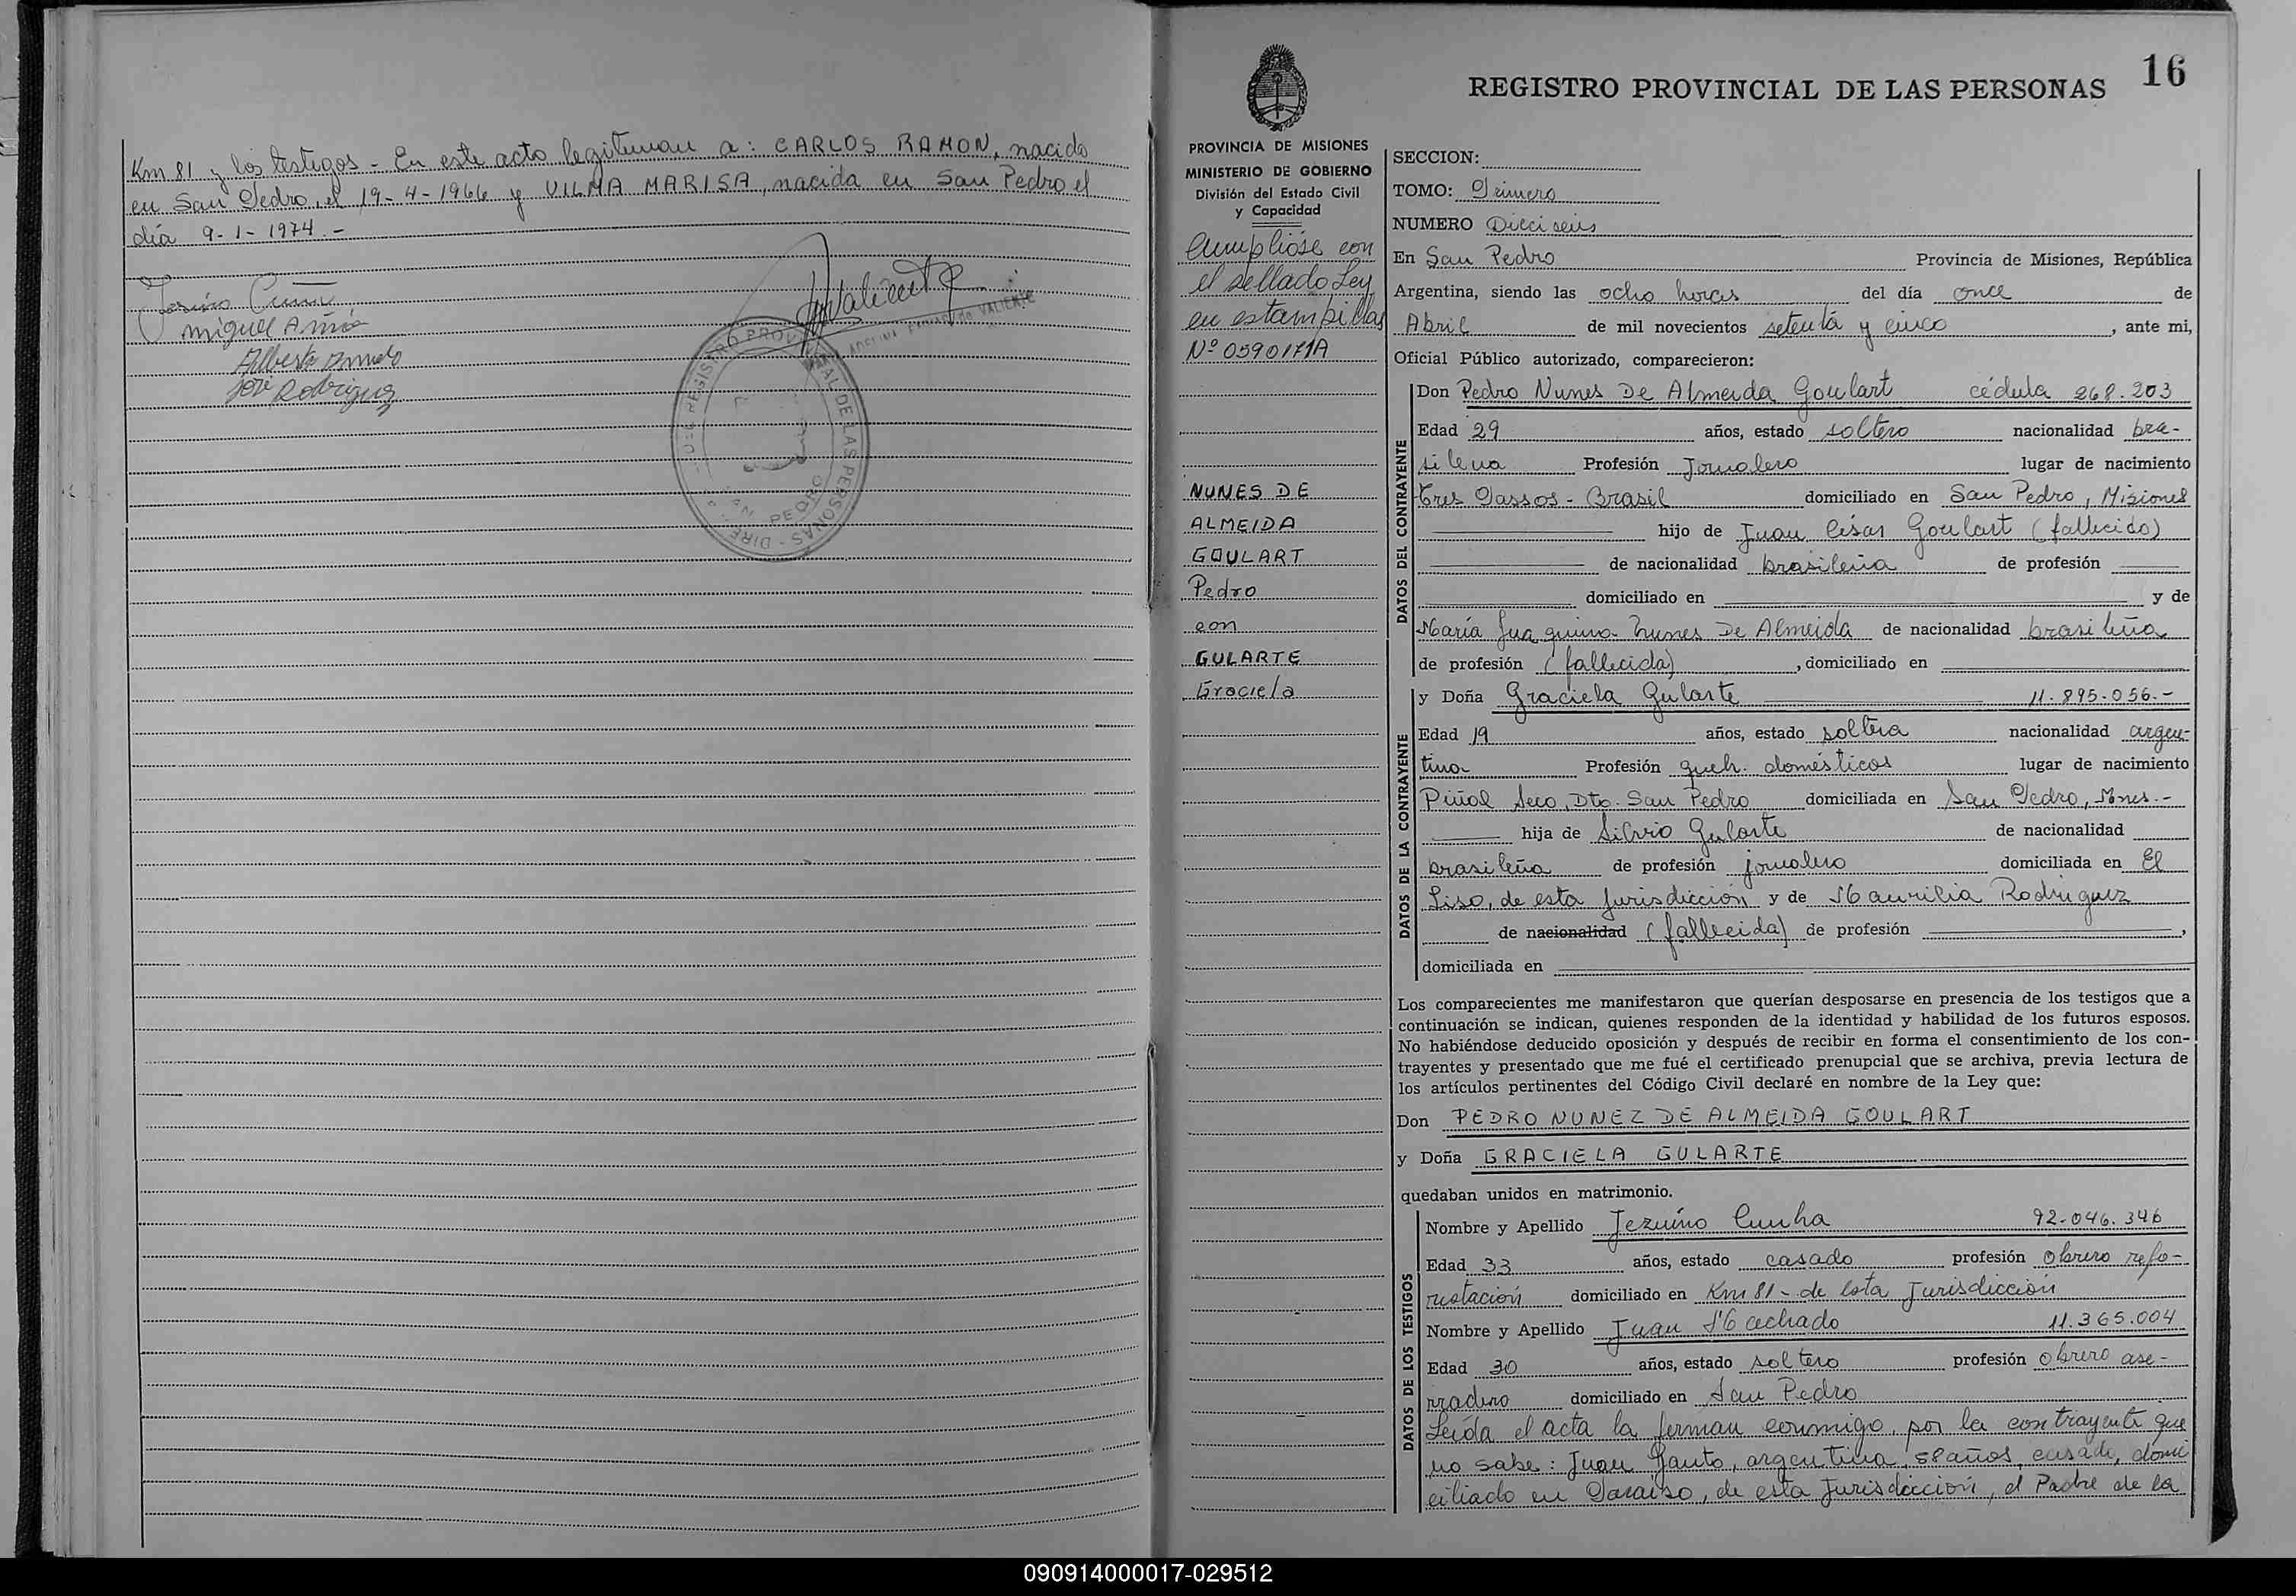 Km 81 y los testigos - En este acto legitiman a: CARLOS RAMON, nacido
en San Pedro, el 19-4-1966 y VILMA MARISA, nacida en San Pedro el
día 9-1-1974.-
miguel
Alberto
José Rodriguez
REGISTRO PROVINCIAL DE LAS PERSONAS
SAN PEDRO
VALIENTE
16
REGISTRO PROVINCIAL DE LAS PERSONAS
PROVINCIA DE MISIONES
MINISTERIO DE GOBIERNO
División del Estado Civil
y Capacidad
Cumplióse con
el sellado Ley
en estampillas
Nº 0590171A
NUNES DE
ALMEIDA
GOULART
Pedro
con
GULARTE
Graciela
SECCION:
TOMO: Primero
NUMERO Dieciseis
En San Pedro Provincia de Misiones, República
Argentina, siendo las ocho horas del día once de
Abril de mil novecientos setenta y cinco, ante mi,
Oficial Público autorizado, comparecieron:
DATOS DEL CONTRAYENTE
Don Pedro Nunes De Almeida Goulart cédula 268.203
Edad 29 años, estado soltero nacionalidad bra-
silena Profesión Jornalero lugar de nacimiento
Tres Passos - Brasil domiciliado en San Pedro, Misiones
hijo de Juan César Goulart (fallecido)
de nacionalidad brasileña de profesión
domiciliado en y de
María Juaquina Nunes De Almeida de nacionalidad brasileña
de profesión (fallecida), domiciliado en
DATOS DE LA CONTRAYENTE
y Doña Graciela Gularte 11.895.056.-
Edad 19 años, estado soltera nacionalidad argen-
tina Profesión queh. domésticos lugar de nacimiento
Piñal Seco, Dto. San Pedro domiciliada en San Pedro, Mnes.-
hija de Silvio Gularte de nacionalidad
brasileña de profesión jornalero domiciliada en El
Liso, de esta Jurisdicción y de Maurilia Rodriguez
de nacionalidad (fallecida) de profesión,
domiciliada en
Los comparecientes me manifestaron que querían desposarse en presencia de los testigos que a
continuación se indican, quienes responden de la identidad y habilidad de los futuros esposos.
No habiéndose deducido oposición y después de recibir en forma el consentimiento de los con-
trayentes y presentado que me fué el certificado prenupcial que se archiva, previa lectura de
los artículos pertinentes del Código Civil declaré en nombre de la Ley que:
Don PEDRO NUNEZ DE ALMEIDA GOULART
y Doña GRACIELA GULARTE
quedaban unidos en matrimonio.
DATOS DE LOS TESTIGOS
Nombre y Apellido Jezuino Cunha 92.046.346
Edad 33 años, estado casado profesión Obrero refo-
restación domiciliado en Km 81 - de esta Jurisdicción
Nombre y Apellido Juan Machado 11.365.004
Edad 30 años, estado soltero profesión Obrero ase-
rradero domiciliado en San Pedro
Leída el acta la firman conmigo, por la contrayente que
no sabe: Juan argentino, 58 años, casado, domi
ciliado en Paraiso, de esta Jurisdicción, el Padre de la
090914000017-029512